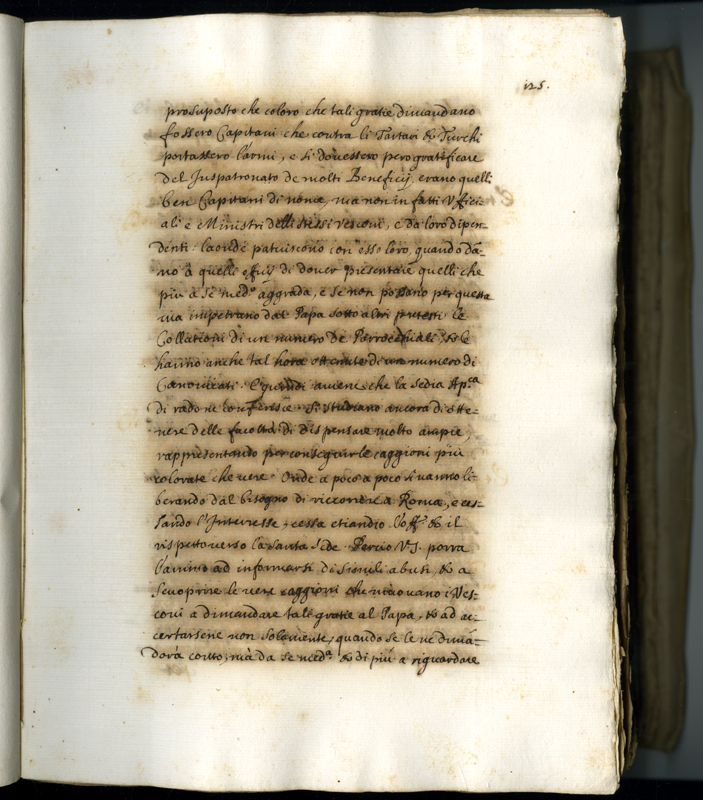 125.
prosuposto che coloro che tali gratie dimandano
fossero Capitani che contra li Tartari & Turchi
portassero l'armi, e si douessero pero gratificare
del Juspatronato de molti Beneficij, erano quelli
ben Capitani di nome, ma non in fatti Uffici-
ali e Ministri delli stessi Vescoui, e da loro dipen-
denti: laonde patuiscono con esso loro, quando dã-
no à quelli offitij di douer presentare quelli che
più à se med.º aggrada, e se non possano per questa
uia impetrano dal Papa sotto altri pretesti le
Collationi di un numero de Parrocchiali, & le
hanno anche tal hora ottenute di un numero di
Canonicati. E quindi auiene che la Sedia Ap.ca
di rado ne conferisce. Si studiano ancora di otte-
nere delle facoltà di dispensare molto ampie,
rappresentando per conseguirle caggioni più
colorate che uere. Onde a poco a poco si uanno li-
berando dal bisogno di riccorrere a Roma, e ces-
sando l'Interesse, cessa etiandio l'off.º & il
rispetto uerso la Santa Sede. Percio V.S. porra
l'animo ad informarsi di simili abusi, & a
scuoprire le uere caggioni che muouano i Ves-
coui a dimandare tali gratie al Papa, & ad ac-
certarsene non solamente, quando se le ne dimã-
dora conto, mà da se med.ª & di più a riguardare